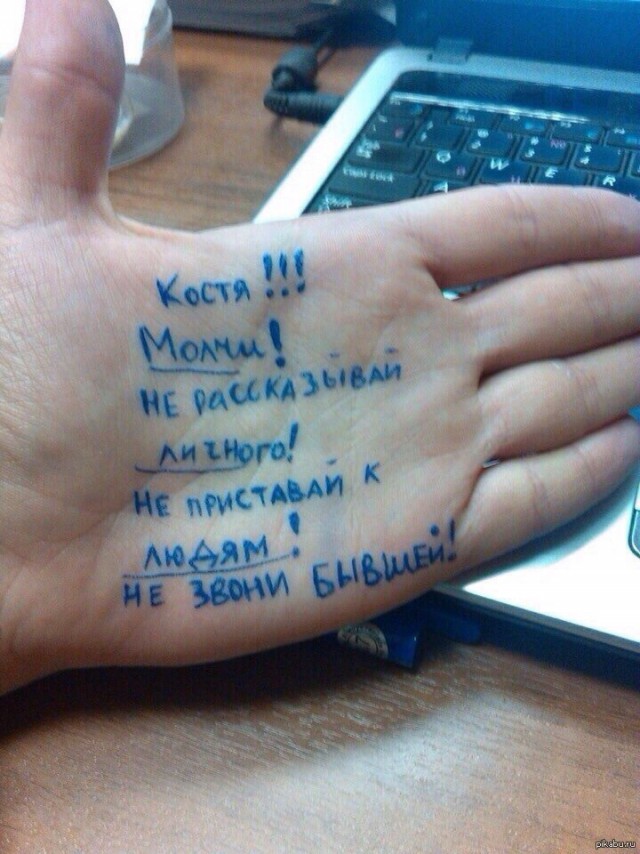 Костя!!!
Молчи!
НЕ РАССКАЗЫВАЙ
личного!
НЕ ПРИСТАВАЙ К
людям!
НЕ ЗВОНИ БЫВШЕЙ!
Caps Lock
Q W E R
pikabu.ru